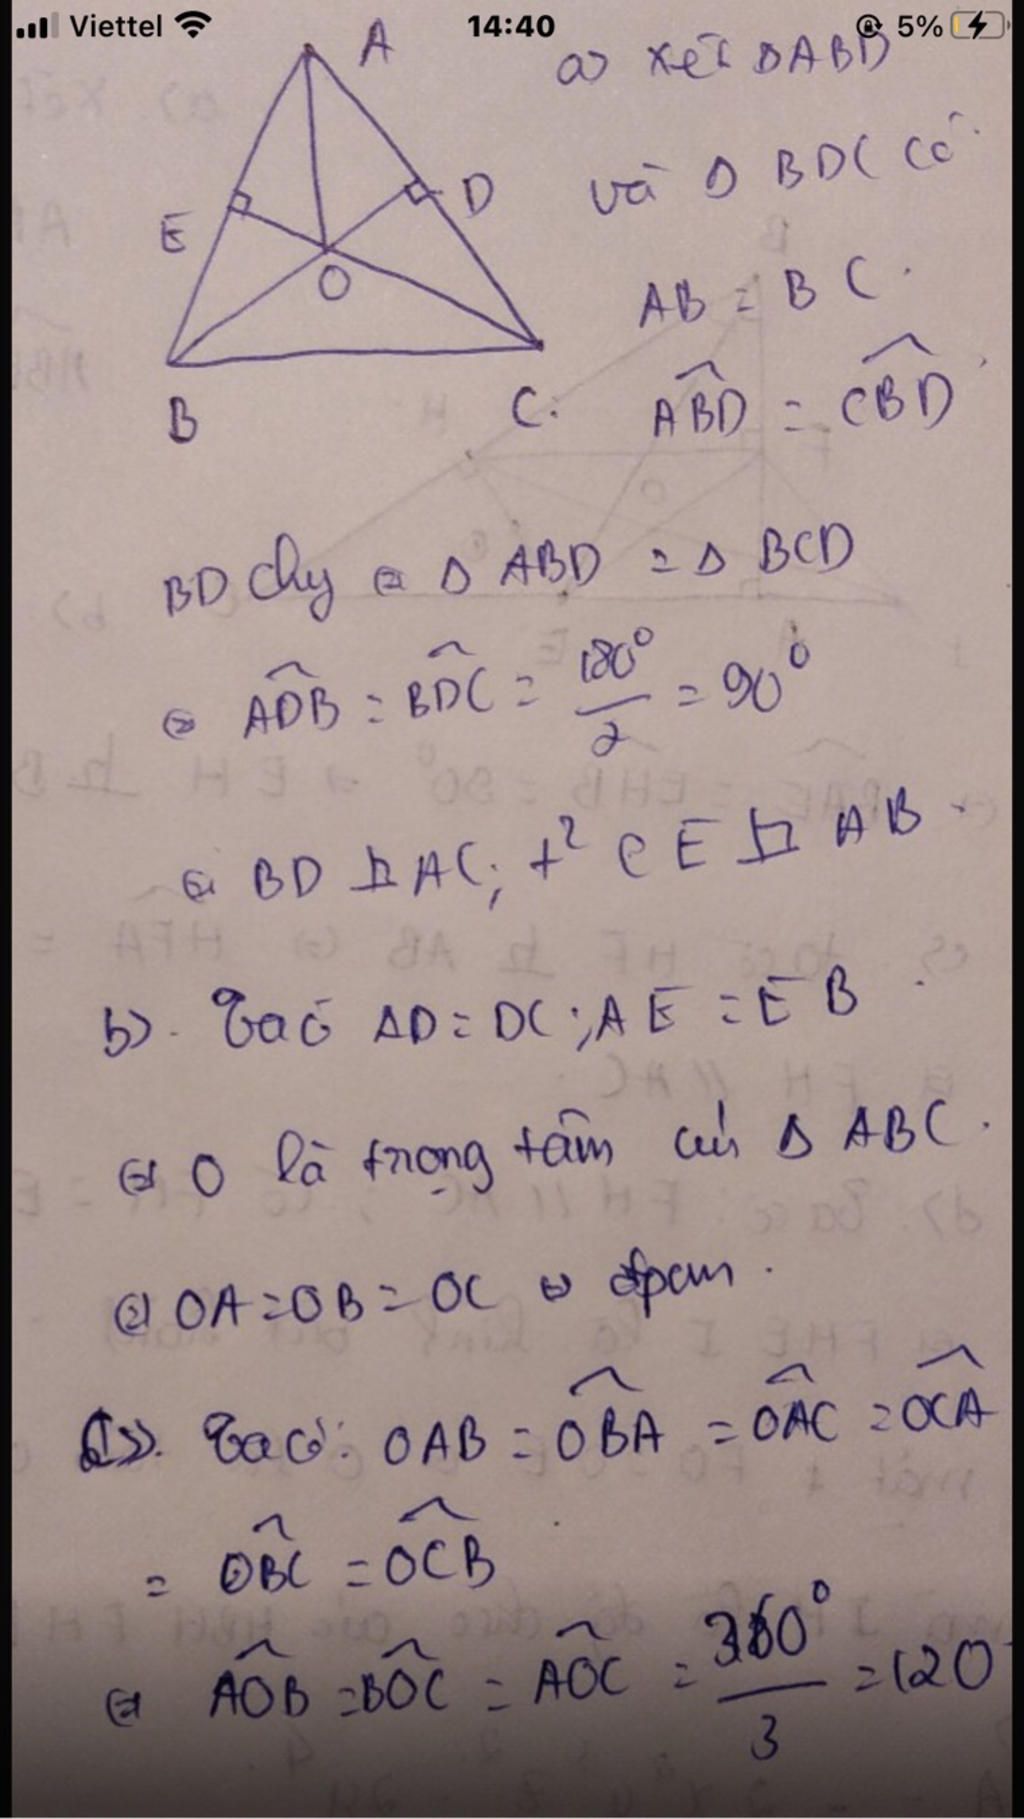 Viettel 14:40 5%
A
a) Xét Δ ABD
D
và Δ BDC có
E
O
AB = BC.
B
C.
ABD = CBD
BD chg ⇒ Δ ABD = Δ BCD
⇒ ADB = BDC = 180°/2 = 90°
⇒ BD ⊥ AC; t² CE ⊥ AB
b). Ta có AD = DC; AE = EB
⇒ O là trọng tâm của Δ ABC.
⇒ OA = OB = OC ⇒ đpcm.
Ta có: OAB = OBA = OAC = OCA
= OBC = OCB
⇒ AOB = BOC = AOC = 360°/3 = 120